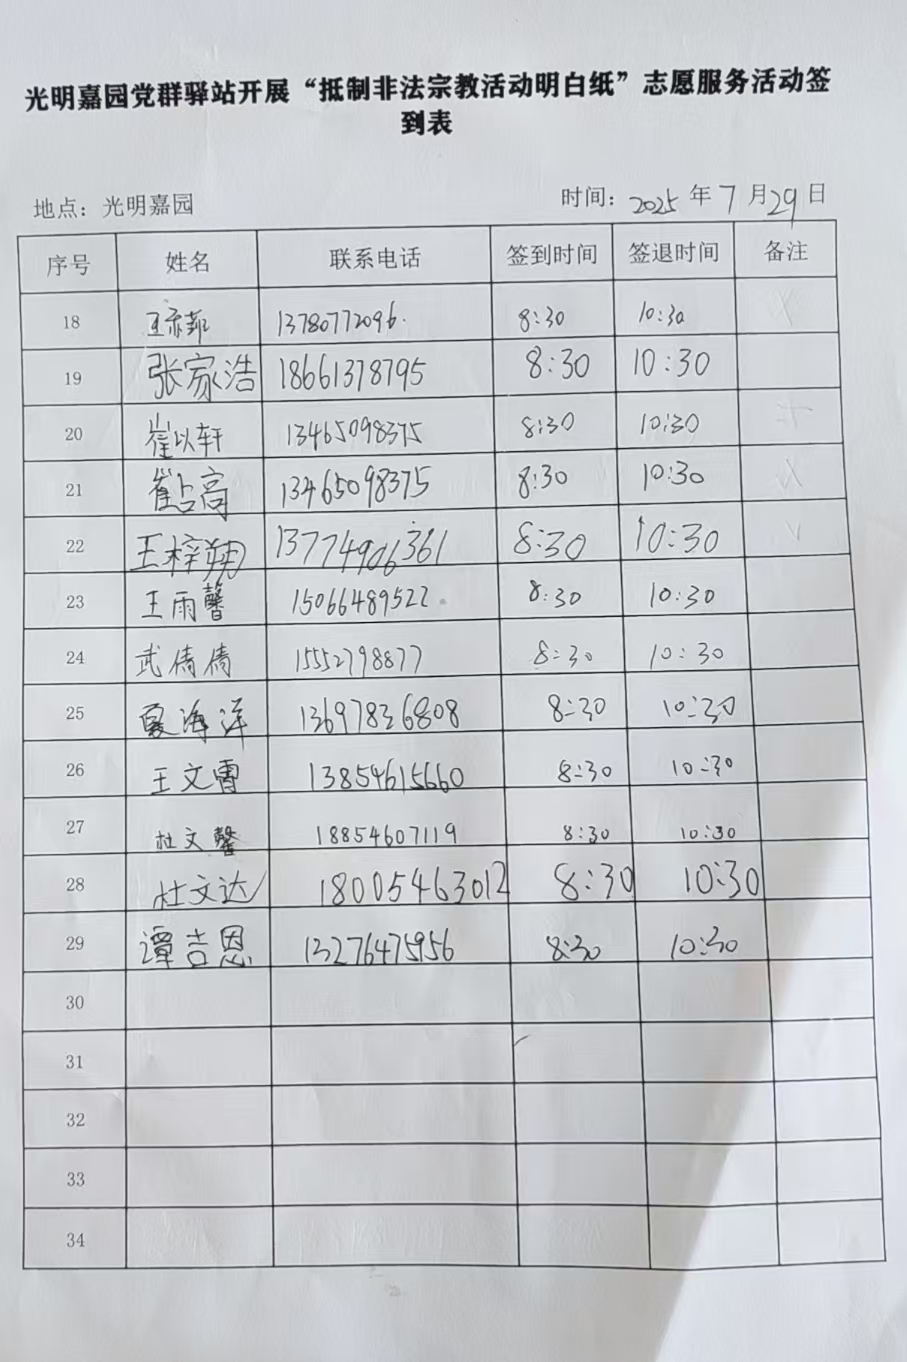 光明嘉园党群驿站开展“抵制非法宗教活动明白纸”志愿服务活动签
到表
地点：光明嘉园 时间：2025 年 7 月 29 日
序号 姓名 联系电话 签到时间 签退时间 备注
18 13780772096 8:30 10:30
19 张家浩 18661378795 8:30 10:30
20 崔以轩 13465098375 8:30 10:30
21 崔占高 13465098375 8:30 10:30
22 王梓翔 13774906361 8:30 10:30
23 王雨馨 15066489522 8:30 10:30
24 武倩倩 15552798877 8:30 10:30
25 夏海洋 13697836808 8:30 10:30
26 王文霄 13854615660 8:30 10:30
27 杜文馨 18854607119 8:30 10:30
28 杜文达 18005463012 8:30 10:30
29 谭吉恩 13276475956 8:30 10:30
30
31
32
33
34